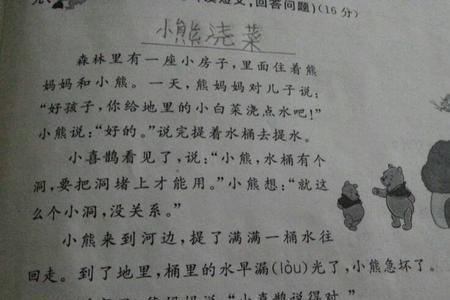 短文,回答问题)(16分)
小熊浇菜
森林里有一座小房子,里面住着熊
妈妈和小熊。一天,熊妈妈对儿子说:
“好孩子,你给地里的小白菜浇点水吧!”
小熊说:“好的。”说完提着水桶去提水。
小喜鹊看见了,说:“小熊,水桶有个
洞,要把洞堵上才能用。”小熊想:“就这
么个小洞,没关系。”
小熊来到河边,提了满满一桶水往
回走。到了地里,桶里的水早漏(lòu)光了,小熊急坏了。
熊妈妈说:“小喜鹊说得对,